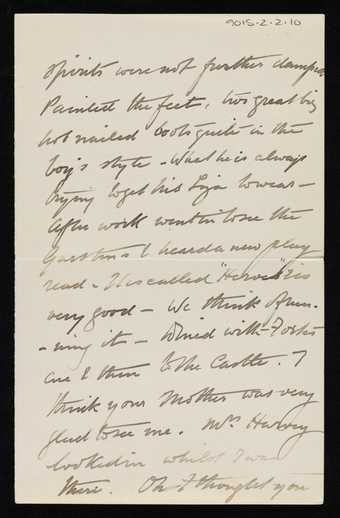 9015-2-2-10
spirits were not further damped
Painted the feet, two great big
hob nailed boots quite in the
boy's style - What he is always
trying to get his Liza to wear -
After work went in to see the
& heard a new play
read - It is called "Hervé" is
very good - We think of run-
-ning it - Dined with Forbes
and then to the Castle. I
think your Mother was very
glad to see me. Mrs Harvey
looked in whilst I was
there. Oh I thought you